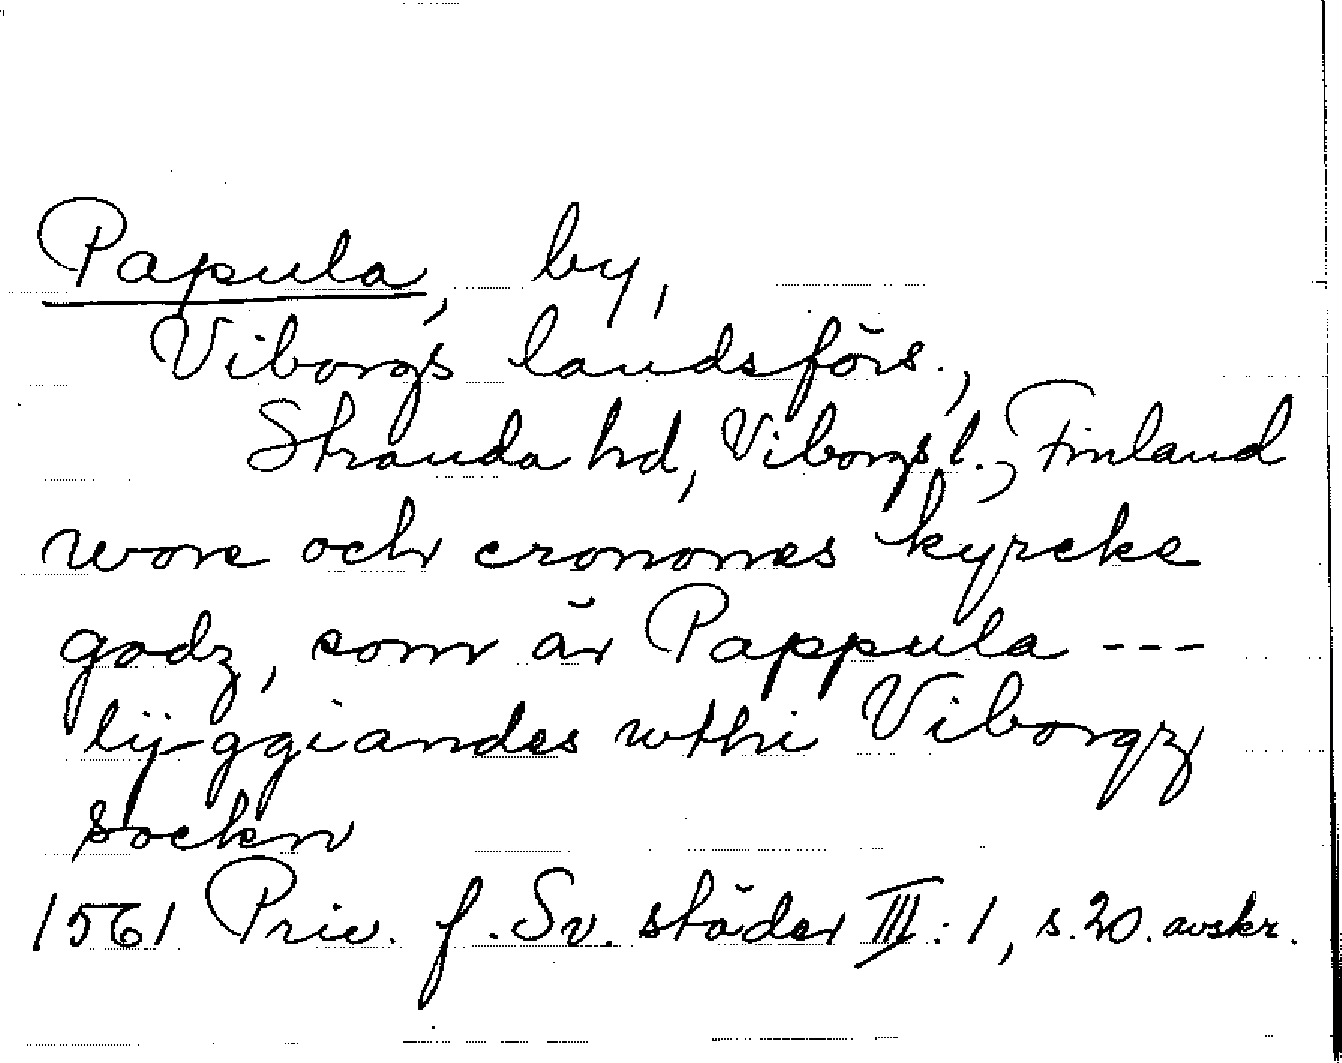 Papula, by,
Viborgs landsförs.,
Stranda hd, Viborgs l., Finland
wore och cronones kyrcke
godz, som är Pappula ---
lijggiandes wthi Viborgz
sockn
1561 Priv. f. Sv. städer III:1, s. 20. avskr.